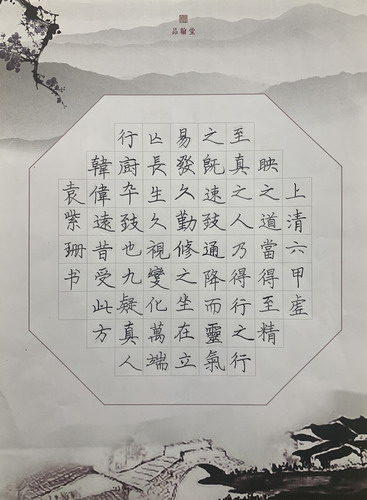 品翰堂
上清六甲虚
映之道當得至精
至真之人乃得行之行
之既速致通降而靈氣
易發久勤修之坐在立
亾長生久視變化萬端
行廚卒致也九疑真人
韓偉遠昔受此方
袁紫珊书